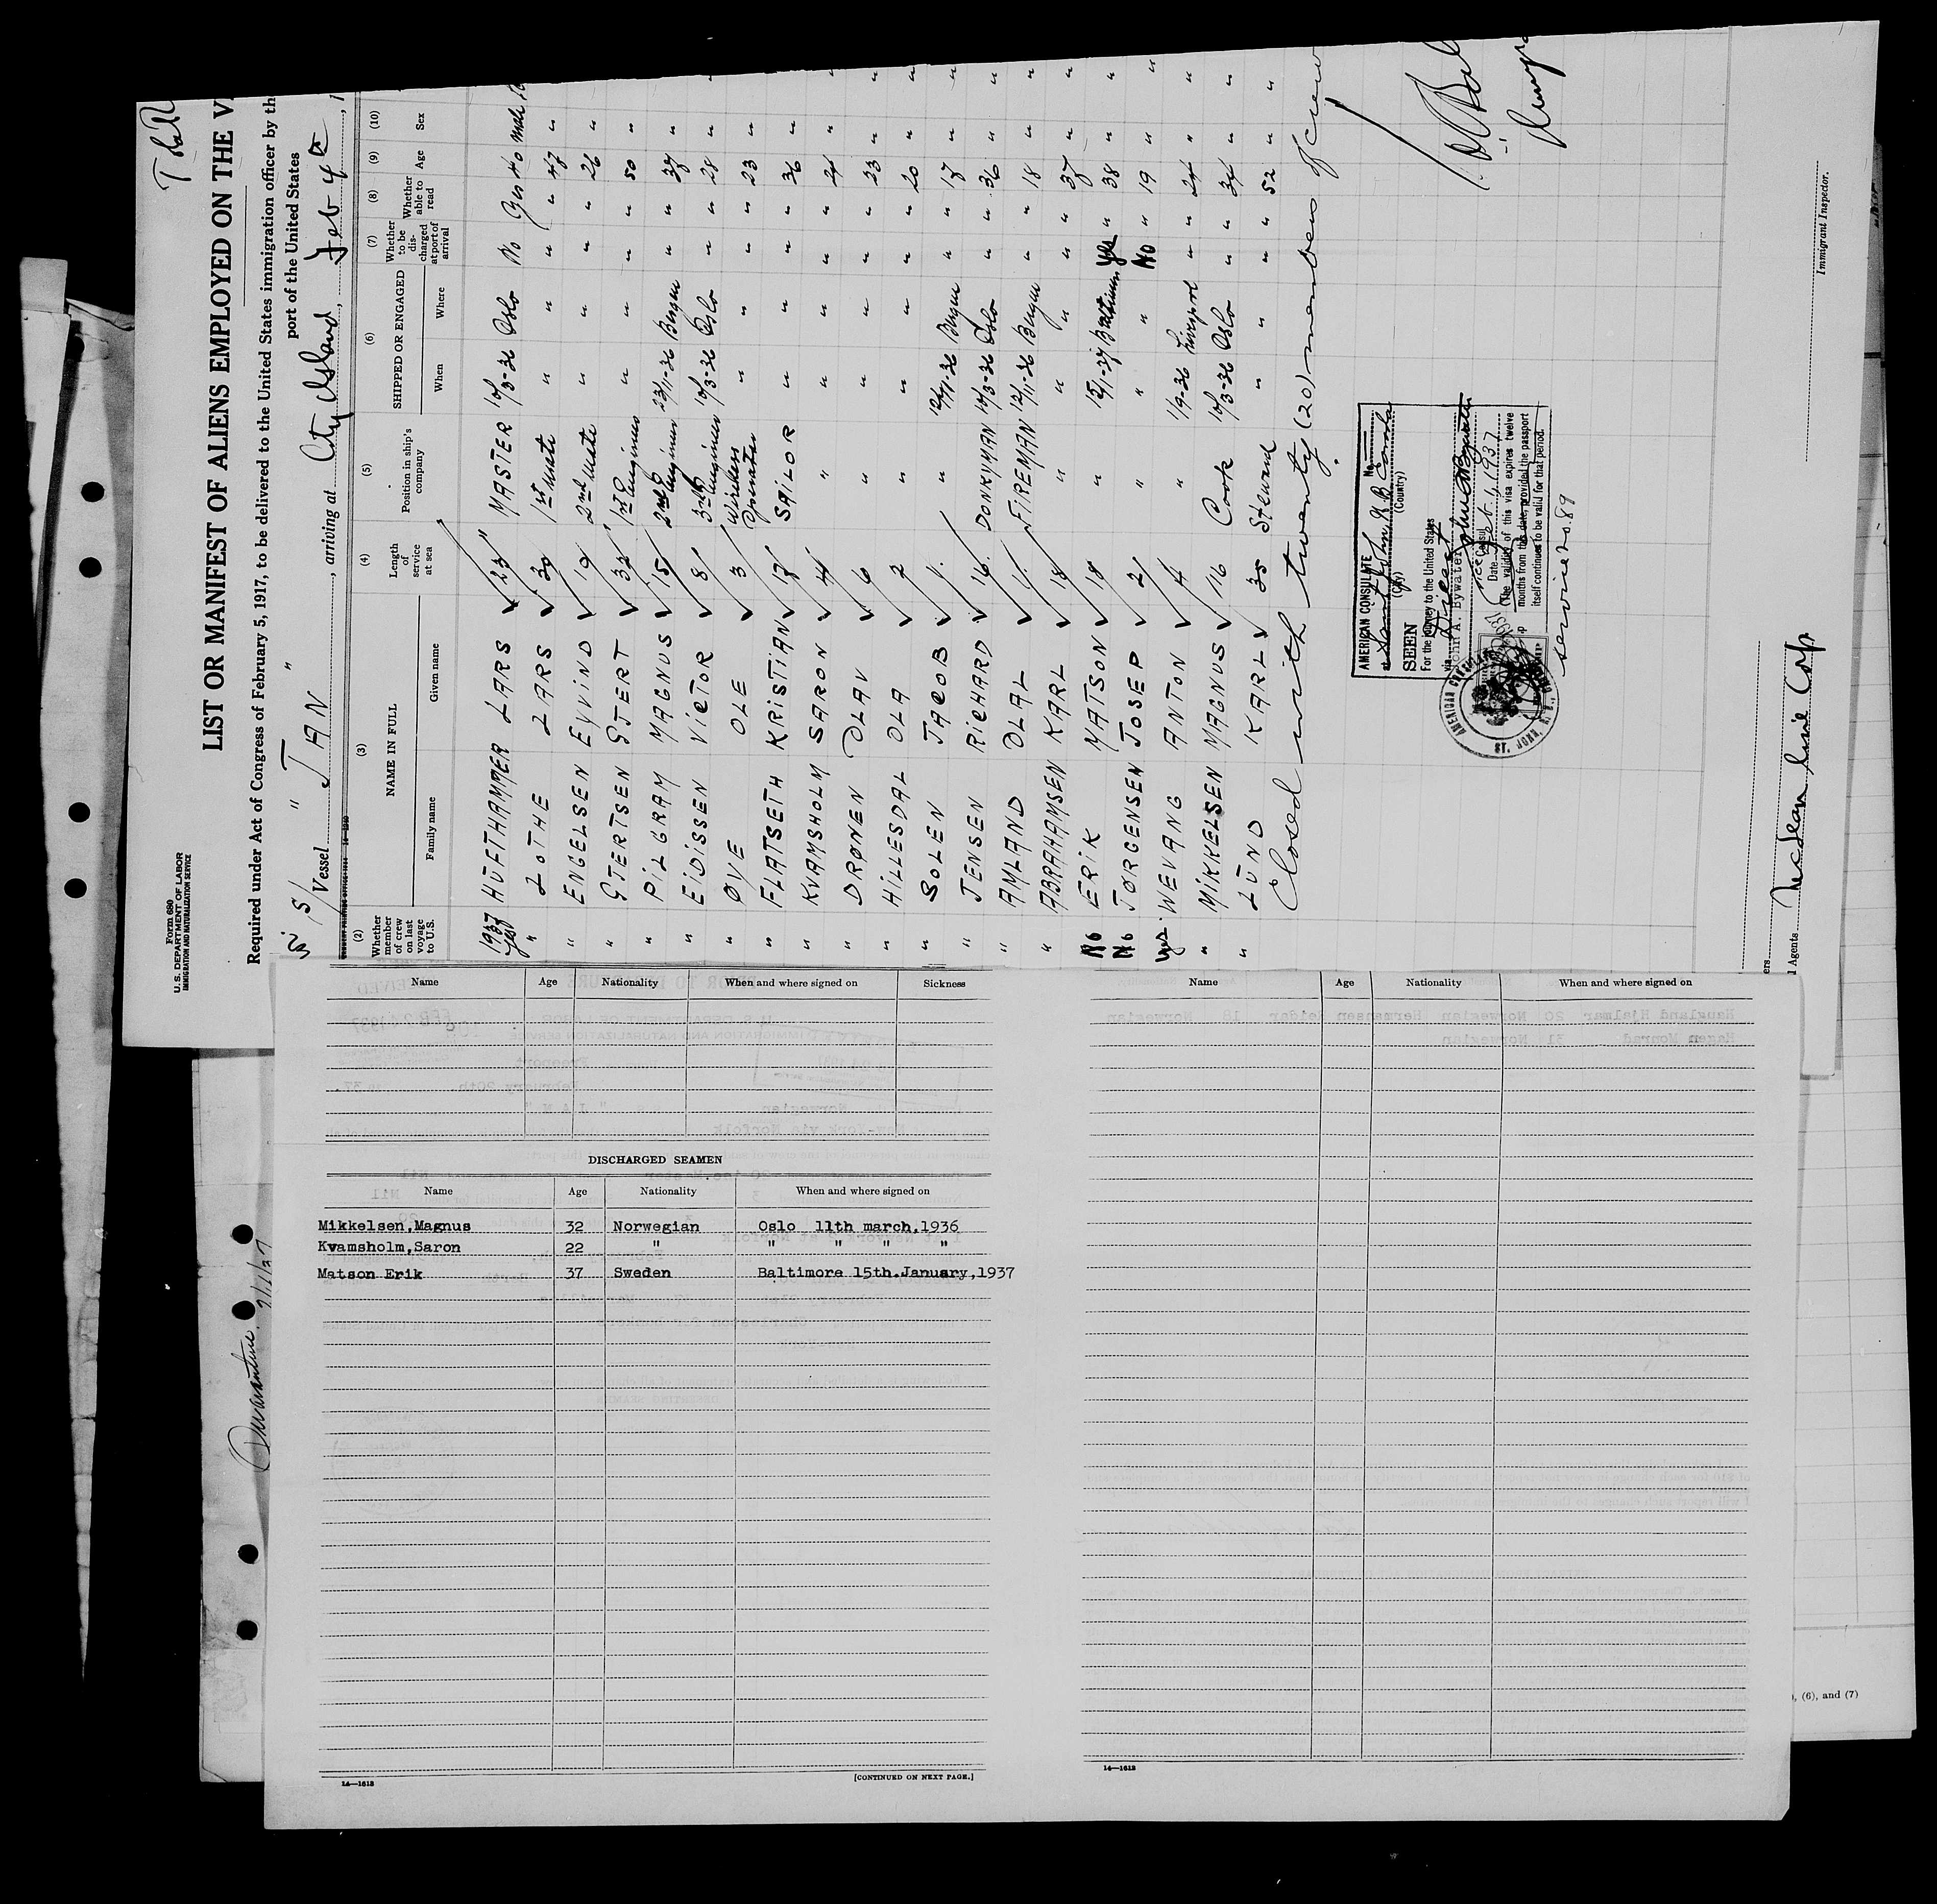 T
LIST OR MANIFEST OF ALIENS EMPLOYED ON THE V
Form 680
U. S. DEPARTMENT OF LABOR
IMMIGRATION AND NATURALIZATION SERVICE
Required under Act of Congress of February 5, 1917, to be delivered to the United States immigration officer by th
port of the United States
Vessel " JAN " , arriving at City Island , Feb 4th , 1
(2) (3) (4) (5) (6) (7) (8) (9) (10)
Whether member of crew on last voyage to U.S. NAME IN FULL Length of service at sea Position in ship's company SHIPPED OR ENGAGED Whether to be discharged at port of arrival Whether able to read Age Sex
Family name Given name When Where
1937 yes HUFTHAMMER LARS 23 " MASTER 10/3-36 Oslo No Yes 40 male
" LOTHE LARS 30 1st Mate " " " " 47 "
" ENGELSEN EYVIND 19 2nd Mate " " " " 26 "
" GJERTSEN GJERT 32 1st Engineer " " " " 50 "
" PILGRAM MAGNUS 15 2nd Engineer 23/11-36 Bergen " " 37 "
" EIDISSEN VICTOR 8 3rd Engineer 10/3-36 Oslo " " 28 "
" ØVE OLE 3 Wireless Operator " " " " 23 "
" FLATSETH KRISTIAN 17 SAILOR " " " " 36 "
" KVAMSHOLM SARON 4 " " " " " 24 "
" DRØNEN OLAV 6 " " " " " 23 "
" HILLESDAL OLA 2 " " " " " 20 "
" SOLEN JACOB 1 " 12/11-36 Bergen " " 17 "
" JENSEN RICHARD 16 DONKYMAN 10/3-36 Oslo " " 36 "
" AMLAND OLAL 1 FIREMAN 12/11-36 Bergen " " 18 "
" ABRAHAMSEN KARL 18 " " " " " 37 "
No ERIK MATSON 18 " 15/1-37 Baltimore Yes " 38 "
No JØRGENSEN JOSEP 2 " " " No " 19 "
Yes WEVANG ANTON 4 " 1/9-36 Liverpool " " 24 "
" MIKKELSEN MAGNUS 16 Cook 10/3-36 Oslo " " 34 "
" LUND KARL 35 Steward " " " " 52 "
Closed with twenty (20) members of crew
AMERICAN CONSULATE
at Saint John, N.B. Canada No.
(City) (Country)
SEEN
For the journey to the United States
via Direct
John A. Bywater
Vice Consul
Date Feb 1, 1937
(The validity of this visa expires twelve
months from this date, provided the passport
itself continues to be valid for that period.
service no. 89
AMERICAN CONSULAR
ST. JOHN
Immigrant Inspector.
ers
l Agents McLean Line Corp
Name Age Nationality When and where signed on Sickness
DISCHARGED SEAMEN
Name Age Nationality When and where signed on
Mikkelsen,Magnus 32 Norwegian Oslo 11th march,1936
Kvamsholm,Saron 22 " " " " "
Matson Erik 37 Sweden Baltimore 15th.January,1937
14—1613 [CONTINUED ON NEXT PAGE.]
Name Age Nationality When and where signed on
14—1613
), (6), and (7)